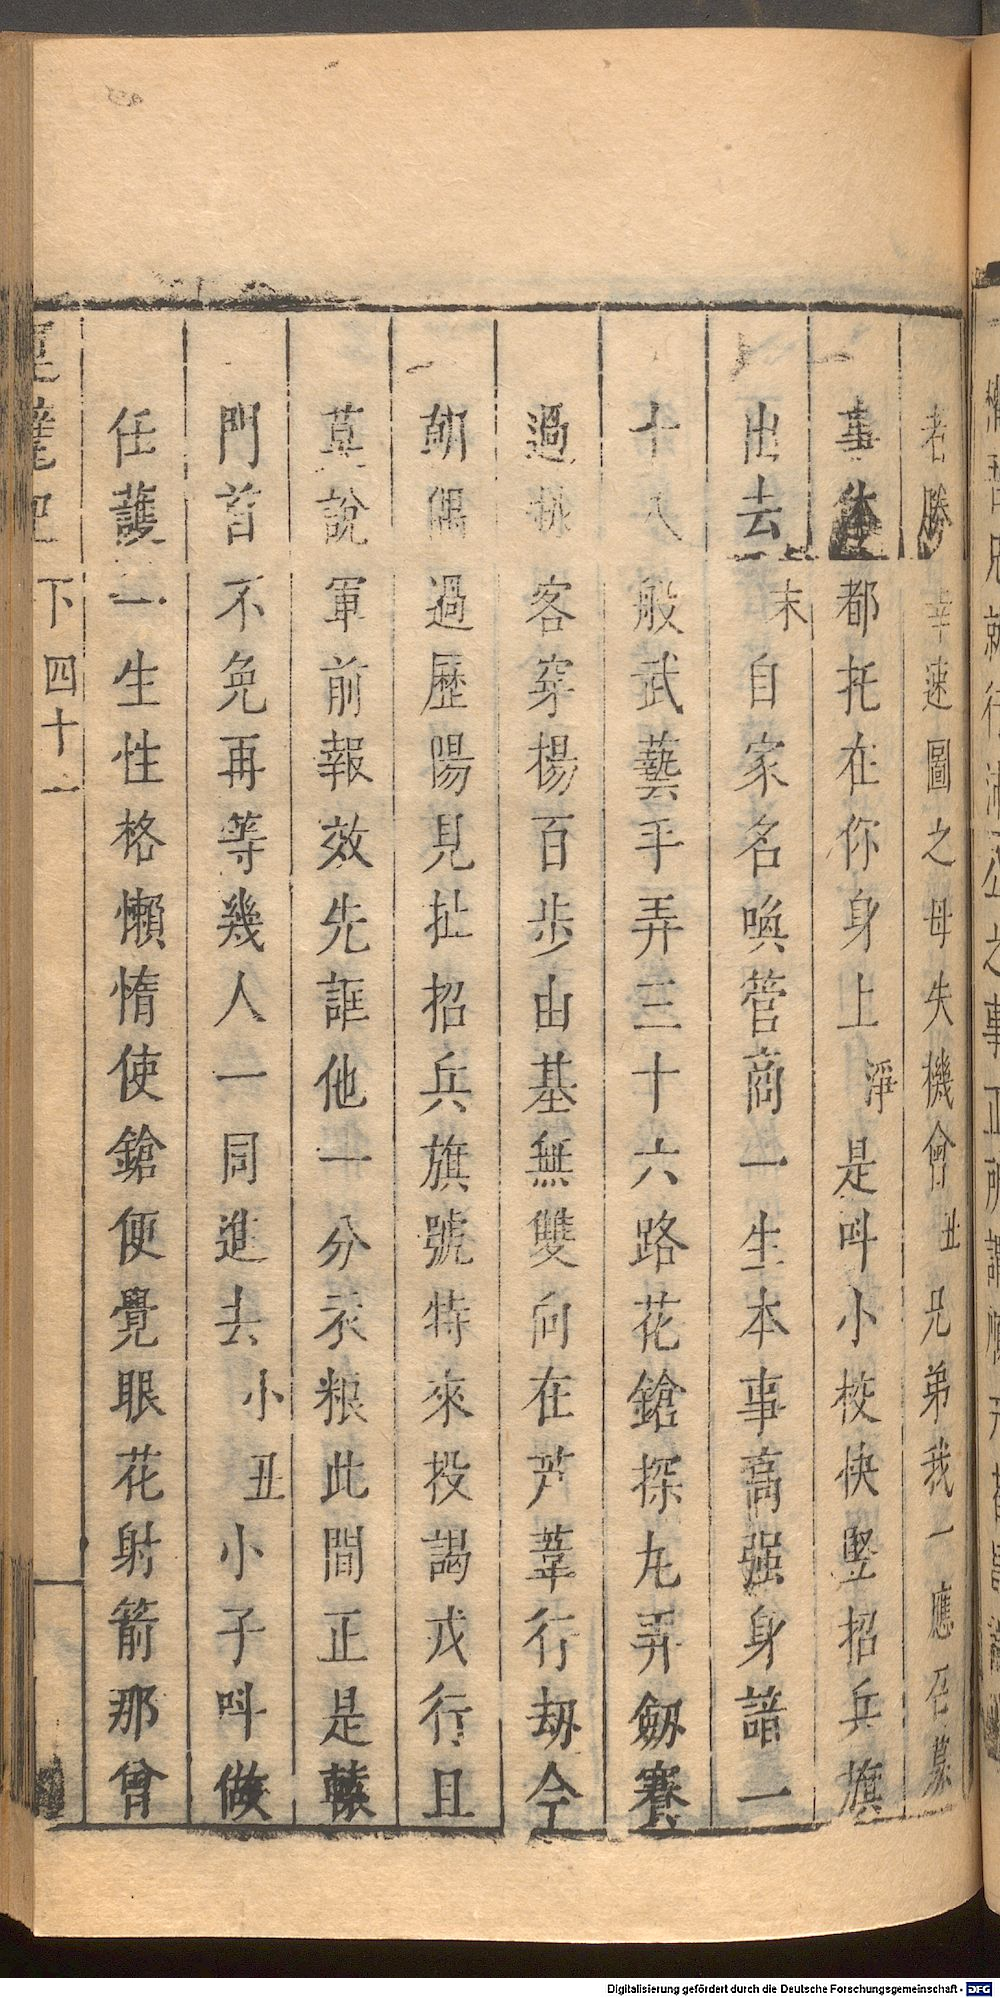 老勝幸速圖之毋失機會丑兄弟我一應召募
事體都托在你身上淨是呌小校快竪招兵旗
出去末自家名喚管商一生本事高强身諳一
十八般武藝手弄三十六路花鎗探丸弄劒賽
過 客穿楊百歩由基無雙向在芦葦行刼今
朝偶過歷陽見扯招兵旗號特來投謁戎行且
莫說軍前報效先誆他一分衣粮此間正是轅
門首不免再等幾人一同進去小丑小子呌做
任護一生性格懶惰使鎗便覺眼花射箭那曾
記 下 四十一
Digitalisierung gefördert durch die Deutsche Forschungsgemeinschaft - DFG